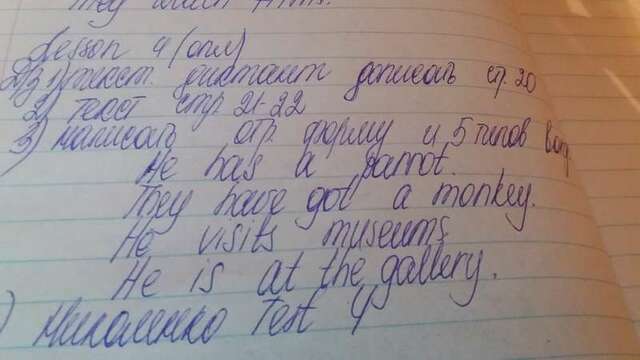 They watch films.
Lesson 4 (опл)
D/з 1) текст. диктант дописать стр. 20
2) текст стр. 21-22
3) написать отр. форму и 5 типов вопр.
He has a parrot.
They have got a monkey.
He visits museums.
He is at the gallery.
) Миколенко Test 4